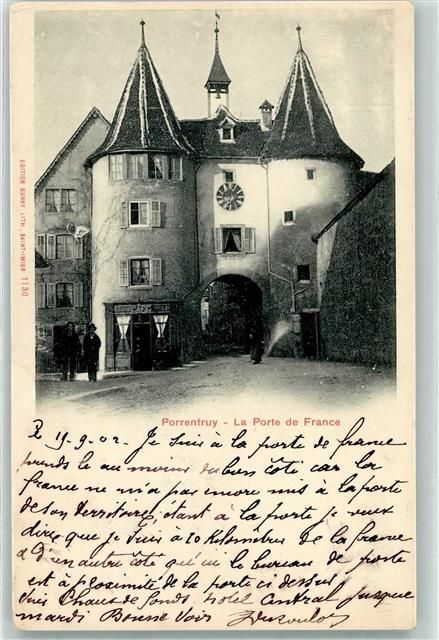 EDITION BURKY LITH. SAINT-IMIER 1130
Porrentruy - La Porte de France
P. 19-9-02. Je suis à la porte de france
prends le au moins du bon côté car la
france ne m'a pas encore mis à la porte
de son territoire, étant à la porte je veux
dire que je suis à 20 Kilomètres de la france
D'un autre côté qu'ici le bureau de poste
est à proximité de la porte ci dessus,
suis Chaux de fonds hotel Central jusque
mardi Bonne